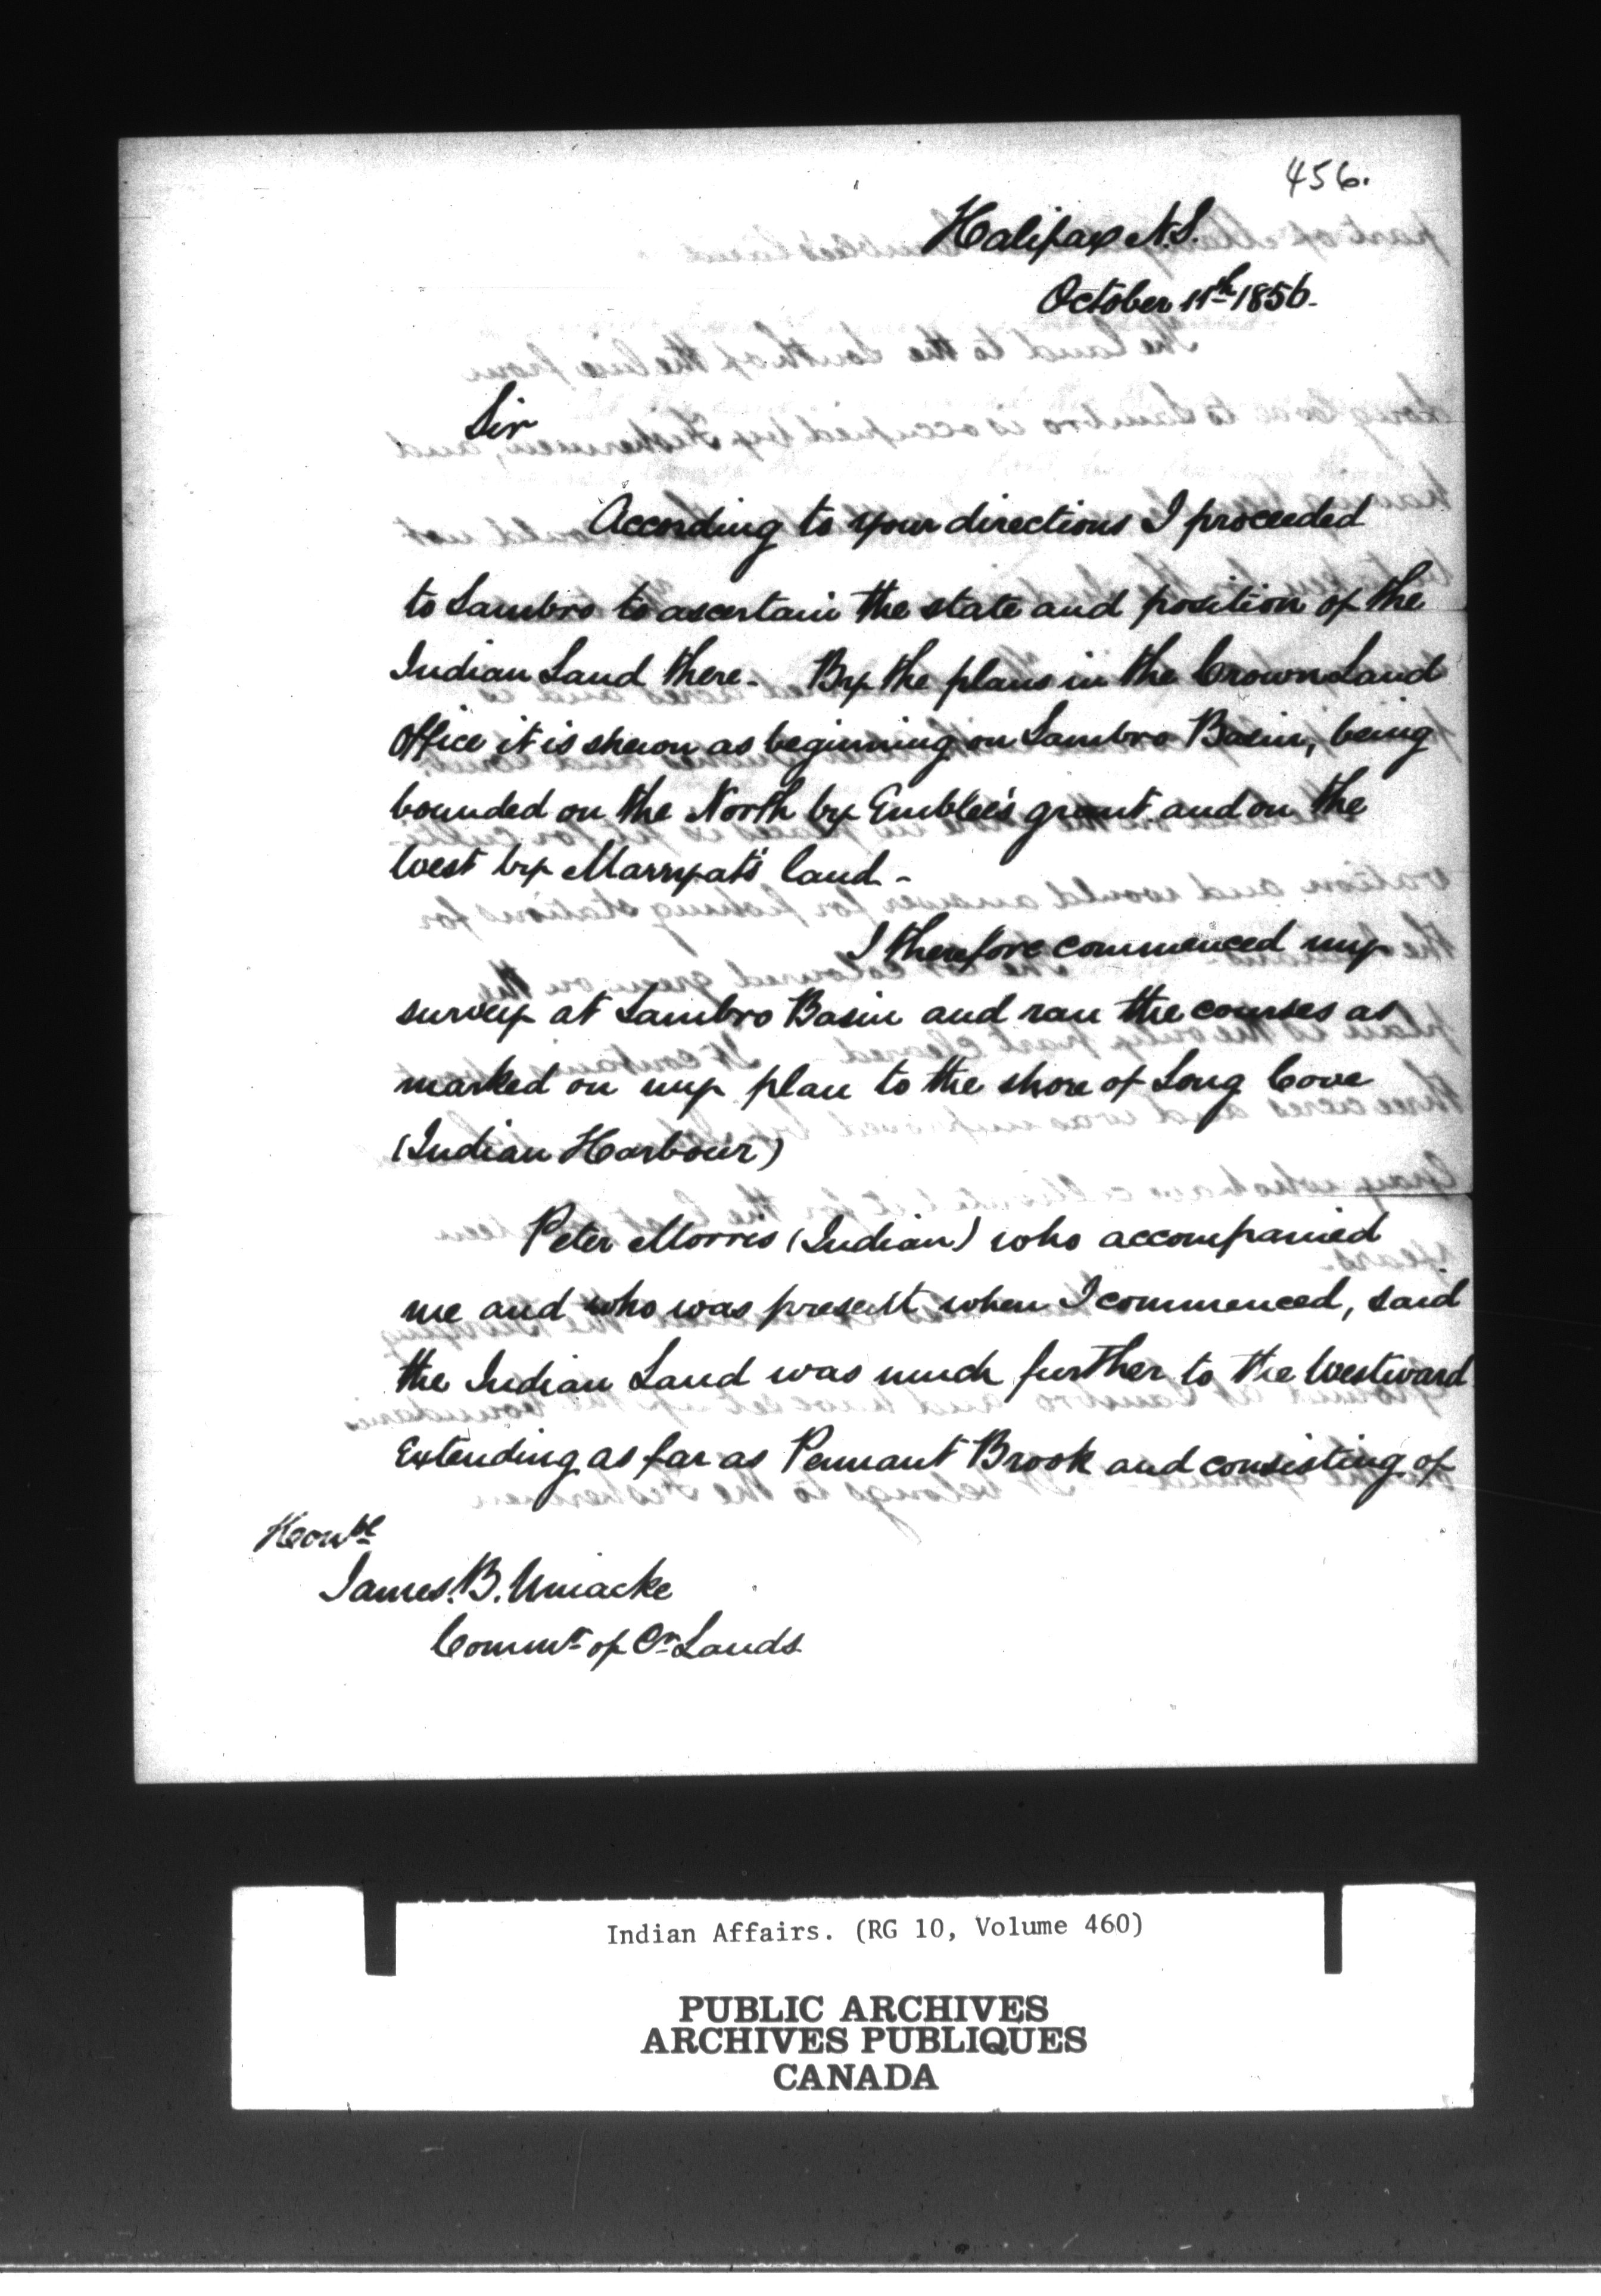 456.
Halifax N.S.
October 11th 1856.
Sir
According to your directions I proceeded
to Sambro to ascertain the state and position of the
Indian Land there - By the plans in the Crown Land
Office it is shewn as beginning on Sambro Basin, being
bounded on the North by Emblee's grant and on the
West by Marryat's land -
I therefore commenced my
survey at Sambro Basin and ran the courses as
marked on my plan to the shore of Long Cove
(Indian Harbour)
Peter Morris (Indian) who accompanied
me and who was present when I commenced, said
the Indian Land was much further to the Westward
Extending as far as Pennant Brook and consisting of
Honble
James. B. Uniacke
Commr of Cr Lands
Indian Affairs. (RG 10, Volume 460)
PUBLIC ARCHIVES
ARCHIVES PUBLIQUES
CANADA